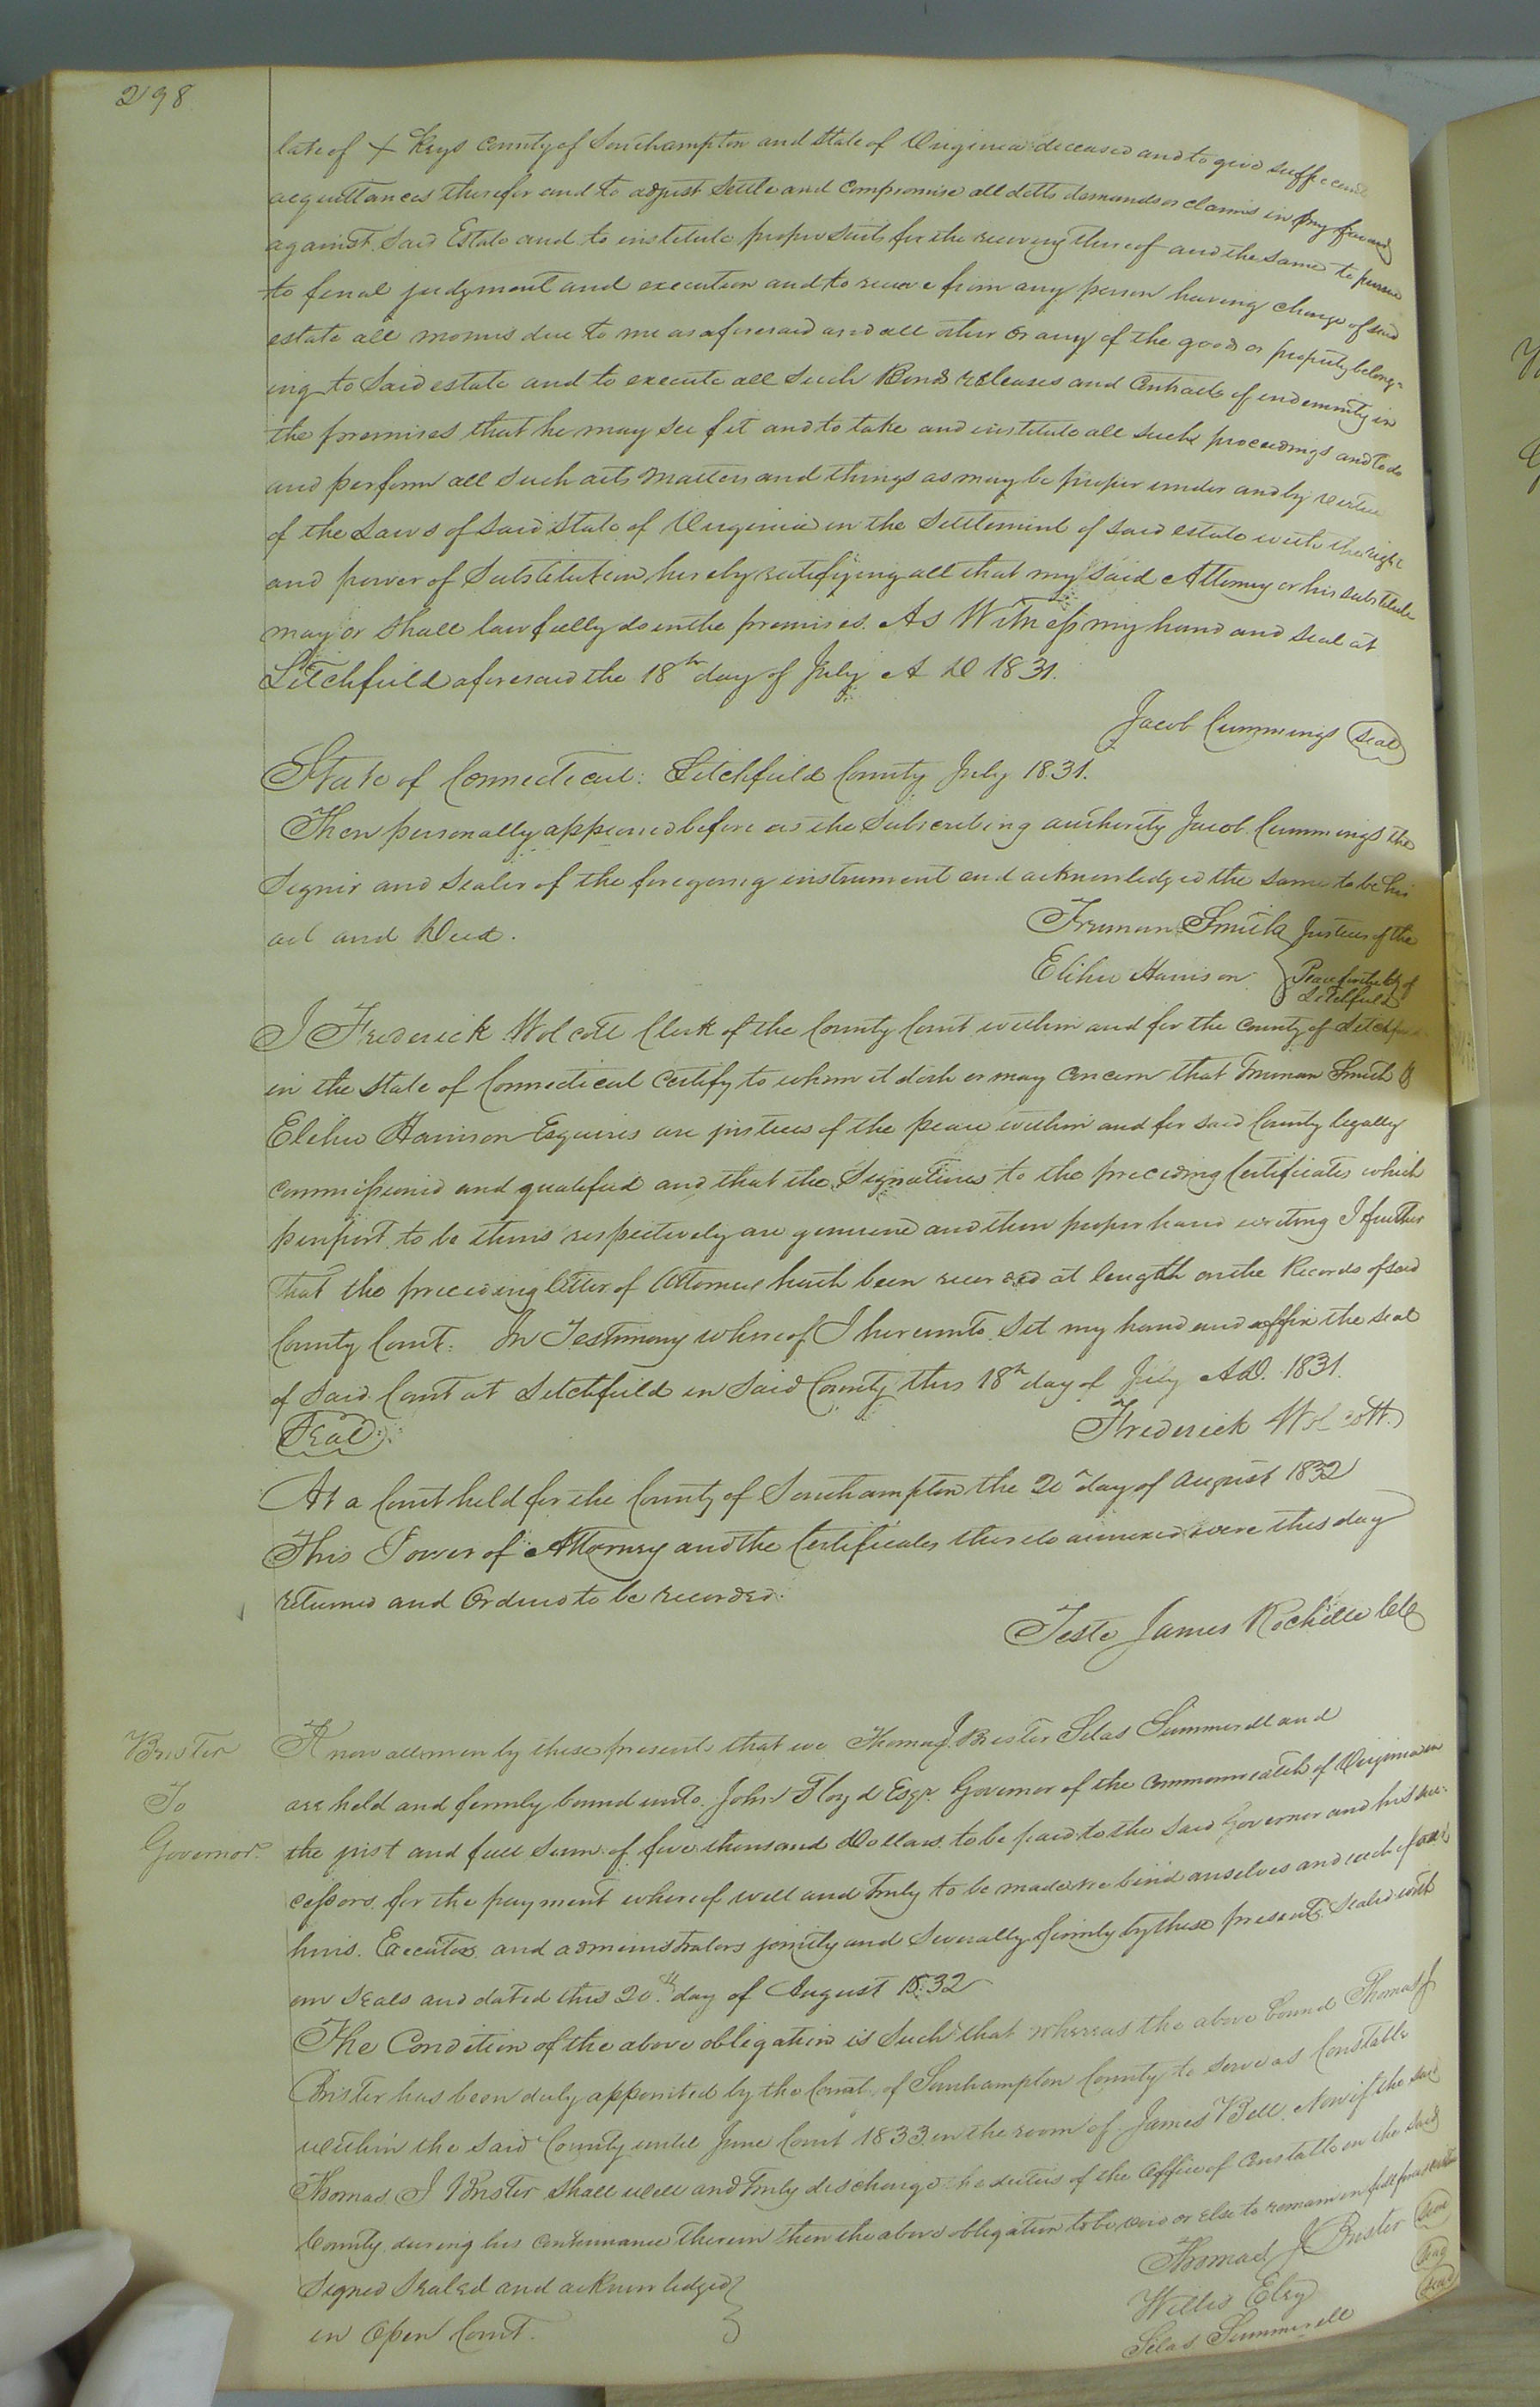 298
late of X Keys County of Southampton and State of Virginia deceased and to give sufficient
acquittances therefor and to adjust Settle and Compromise all debts demands or claims in my favour
against Said Estate and to institute proper Suits for the recovery thereof and the Same to pursue
to final judgment and execution and to receive from any person having charge of said
estate all monies due to me as aforesaid and all other or any of the goods or property belong-
ing to Said estate and to execute all Such Bonds releases and Contracts of indemnity in
the premises that he may see fit and to take and institute all Such proceedings and to do
and perform all Such acts matters and things as may be proper under and by virtue
of the Laws of Said State of Virginia in the Settlement of Said estate with the right
and power of Substitution hereby ratifying all that my Said Attorney or his substitute
may or Shall lawfully do in the premises. As Witness my hand and seal at
Litchfield aforesaid the 18th day of July A D 1831.
Jacob Cummings Seal
State of Connecticut: Litchfield County July 1831.
Then personally appeared before us the Subscribing authority Jacob Cummings the
Signer and Sealer of the foregoing instrument and acknowledged the Same to be his
act and Deed.
Truman Smith Justices of the
Elihu Harrison Peace for the Cty of
Litchfield
I Frederick Wolcott Clerk of the County Court within and for the County of Litchfield
in the State of Connecticut Certify to whom it doth or may Concern that Truman Smith &
Elihu Harrison Esquires are justices of the peace within and for Said County legally
Commissioned and qualified and that the Signatures to the preceding Certificates which
purport to be theirs respectively are genuine and their proper hand writing I further
that the preceding letter of Attorney hath been recorded at length on the Records of Said
County Court. In Testimony whereof I hereunto Set my hand and affix the seal
of Said Court at Litchfield in Said County this 18th day of July A.D. 1831.
Seal
Frederick Wolcott.
At a Court held for the County of Southampton the 20th day of August 1832
This Power of Attorney and the Certificates thereto annexed were this day
returned and Ordered to be recorded.
Teste James Rochelle Clk
Brister
To
Governor.
Know all men by these presents that we Thomas J. Brister Silas Summerell and
are held and firmly bound unto John Floyd Esqr. Governor of the Commonwealth of Virginia in
the just and full Sum of five thousand Dollars to be paid to the Said Governor and his suc-
cessors for the payment whereof well and truly to be made we bind ourselves and each of our
heirs. Executors and administrators jointly and Severally firmly by these presents. Sealed with
our seals and dated this 20th day of August 1832
The Condition of the above obligation is Such that whereas the above bound Thomas J
Brister has been duly appointed by the Court of Southampton County to serve as Constable
within the said County until June Court 1833 in the room of James Bell. Now if the said
Thomas J Brister Shall well and truly discharge the duties of the Office of Constable in the said
County during his Continuance therein then the above obligation to be void or else to remain in full force
Signed Sealed and acknowledged
in Open Court.
Thomas J Brister Seal
Willis Eley Seal
Silas Summerell Seal